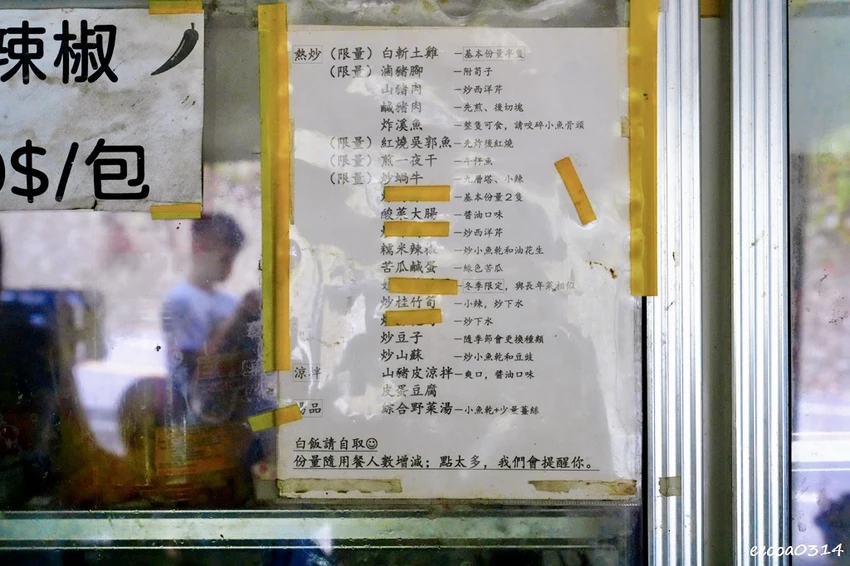 辣椒
0$/包
熱炒 (限量) 白斬土雞 —基本份量半隻
(限量) 滷豬腳 —附筍子
山豬肉 —炒西洋芹
鹹豬肉 —先煎、後切塊
炸溪魚 —整隻可食，請咬碎小魚骨頭
(限量) 紅燒吳郭魚 —先炸後紅燒
(限量) 煎一夜干 —午仔魚
(限量) 炒蝸牛 —九層塔、小辣
—基本份量２隻
酸菜大腸 —醬油口味
—炒西洋芹
糯米辣椒 —炒小魚乾和油花生
苦瓜鹹蛋 —綠色苦瓜
—冬季限定，與長年菜相似
炒桂竹筍 —小辣，炒下水
—炒下水
炒豆子 —隨季節會更換種類
炒山蘇 —炒小魚乾和豆豉
涼拌 山豬皮涼拌 —爽口，醬油口味
皮蛋豆腐
品 綜合野菜湯 —小魚乾+少量薑絲
白飯請自取☺
份量隨用餐人數增減；點太多，我們會提醒你。
eccoa0314